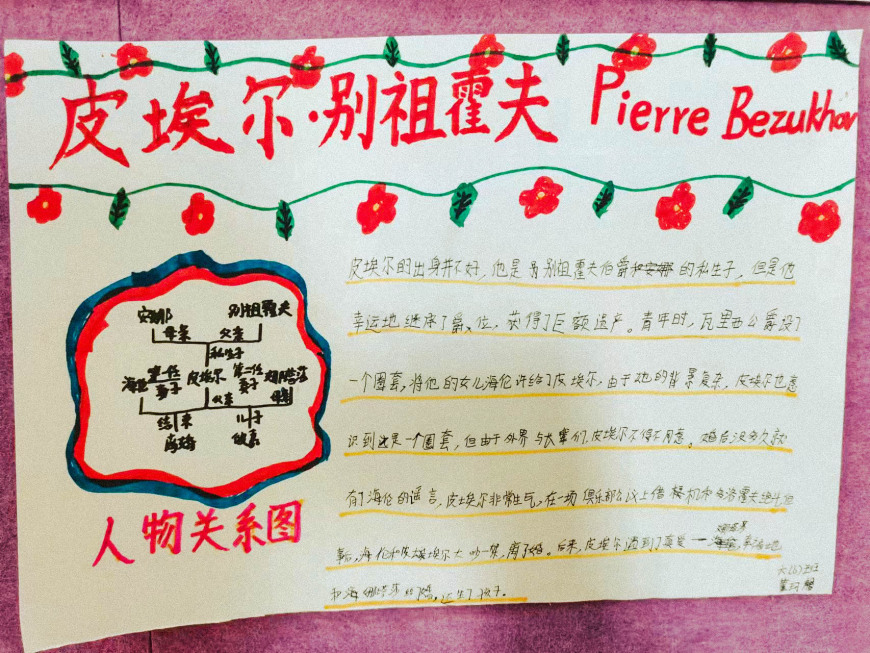 皮埃尔·别祖霍夫 Pierre Bezukhov
安娜 别祖霍夫
母亲 父亲
私生子
海伦 第一任妻子 皮埃尔 第二位妻子
父亲 母亲
结束 儿子
离婚
人物关系图
皮埃尔的出身并不好，他是别祖霍夫伯爵和安娜的私生子，但是他
幸运地继承了爵位，获得了巨额遗产。青年时，瓦里西公爵设了
一个圈套，将他的女儿海伦许给了皮埃尔，由于她的背景复杂，皮埃尔也意
识到这是一个圈套，但由于外界与大家们，皮埃尔不得不同意。婚后没多久就
有了海伦的谣言，皮埃尔非常生气，在一场俱乐部会议上借机和多洛霍夫决斗
事后，海伦和皮埃尔大吵一架，离了婚。后来，皮埃尔遇到了真爱一
和 娜塔莎结了婚，还生了孩子。
六(6)班